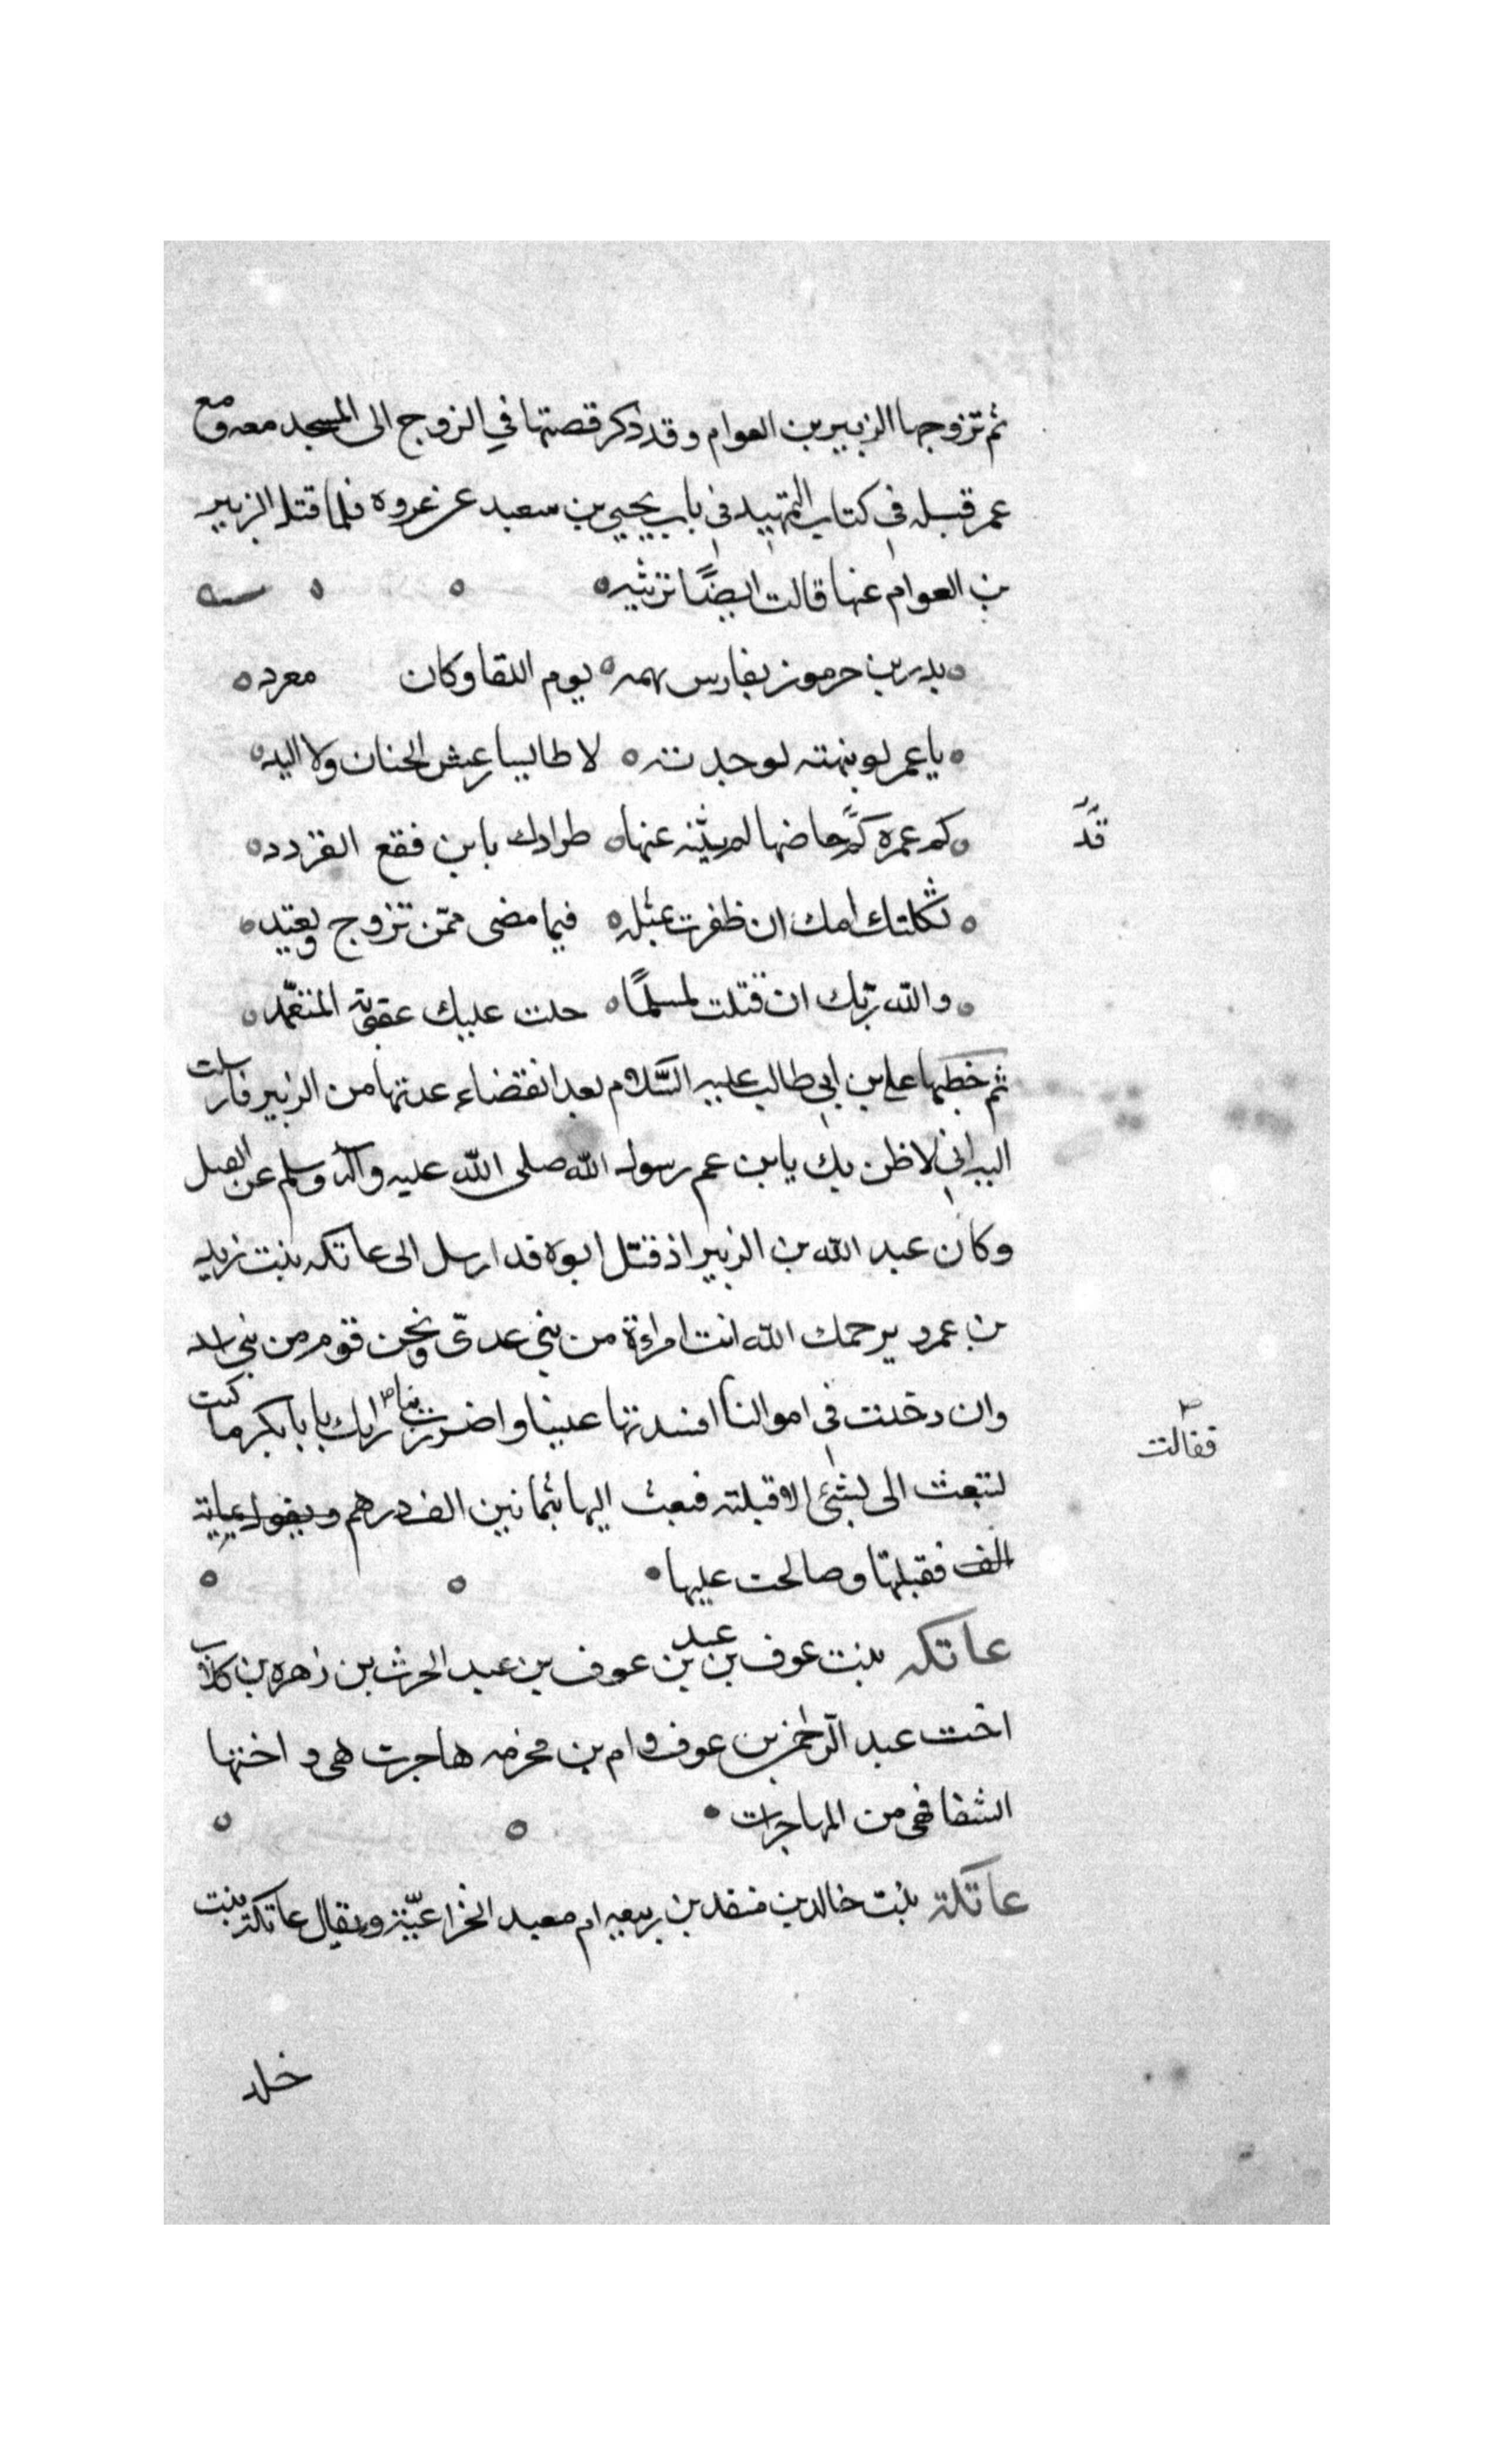 ثم تزوجها الزبير بن العوام وقد ذكر قصتها في الزوج الى المسجد معه ومع
عمر قبله في كتاب التمهيد في باب يحيي بن سعيد عن عروه فلما قتل الزبير
بن العوام عنها قالت ايضًا ترثيه
بدر بن حرموز بفارس بهمه يوم اللقا وكان معرد
يا عمر لو نبهته لوجدته لا طايسا رعش الجنان ولا اليد
كم عمرة كرَّ خاضها لم يثنه عنها طرادك يا بن فقع القردد
قد
ثكلتك امك ان ظفرت بمثله فيما مضى ممّن تزوج ويعتيد
والله ربّك ان قتلت لمسلمًا حلت عليك عقوبة المتعمّد
ثم خطبها علي بن ابي طالب عليه السَّلام بعد انقضاء عدتها من الزبير فارسلت
اليه اني لاظن بك يابن عم رسول الله صلى الله عليه وآله وسلم عن القتل
وكان عبد الله بن الزبير اذ قتل ابوه قد ارسل الى عاتكه بنت زيد
بن عمرو يرحمك الله انت امراءة من بني عدىّ ونحن قوم من بني اسد
وان دخلت في اموالنا افسدتها علينا واضررت بنا رايك يا بابكر ما كنت
فقالت
لتبعث الى بشئ الا قبلته فبعث اليها بثمانين الف درهم
الف فقبلتها وصالحت عليها
عاتكه بنت عوف بن عبد بن عوف بن عبد الحرث بن زهره بن كلاب
اخت عبد الرّحمن بن عوف وام بن مخرمه هاجرت هى و اختها
الشفا فهى من المهاجرات
عاتكة بنت خالد بن منقد بن ربيعه ام معبد الخزاعيّة ويقال عاتكة بنت
خلد